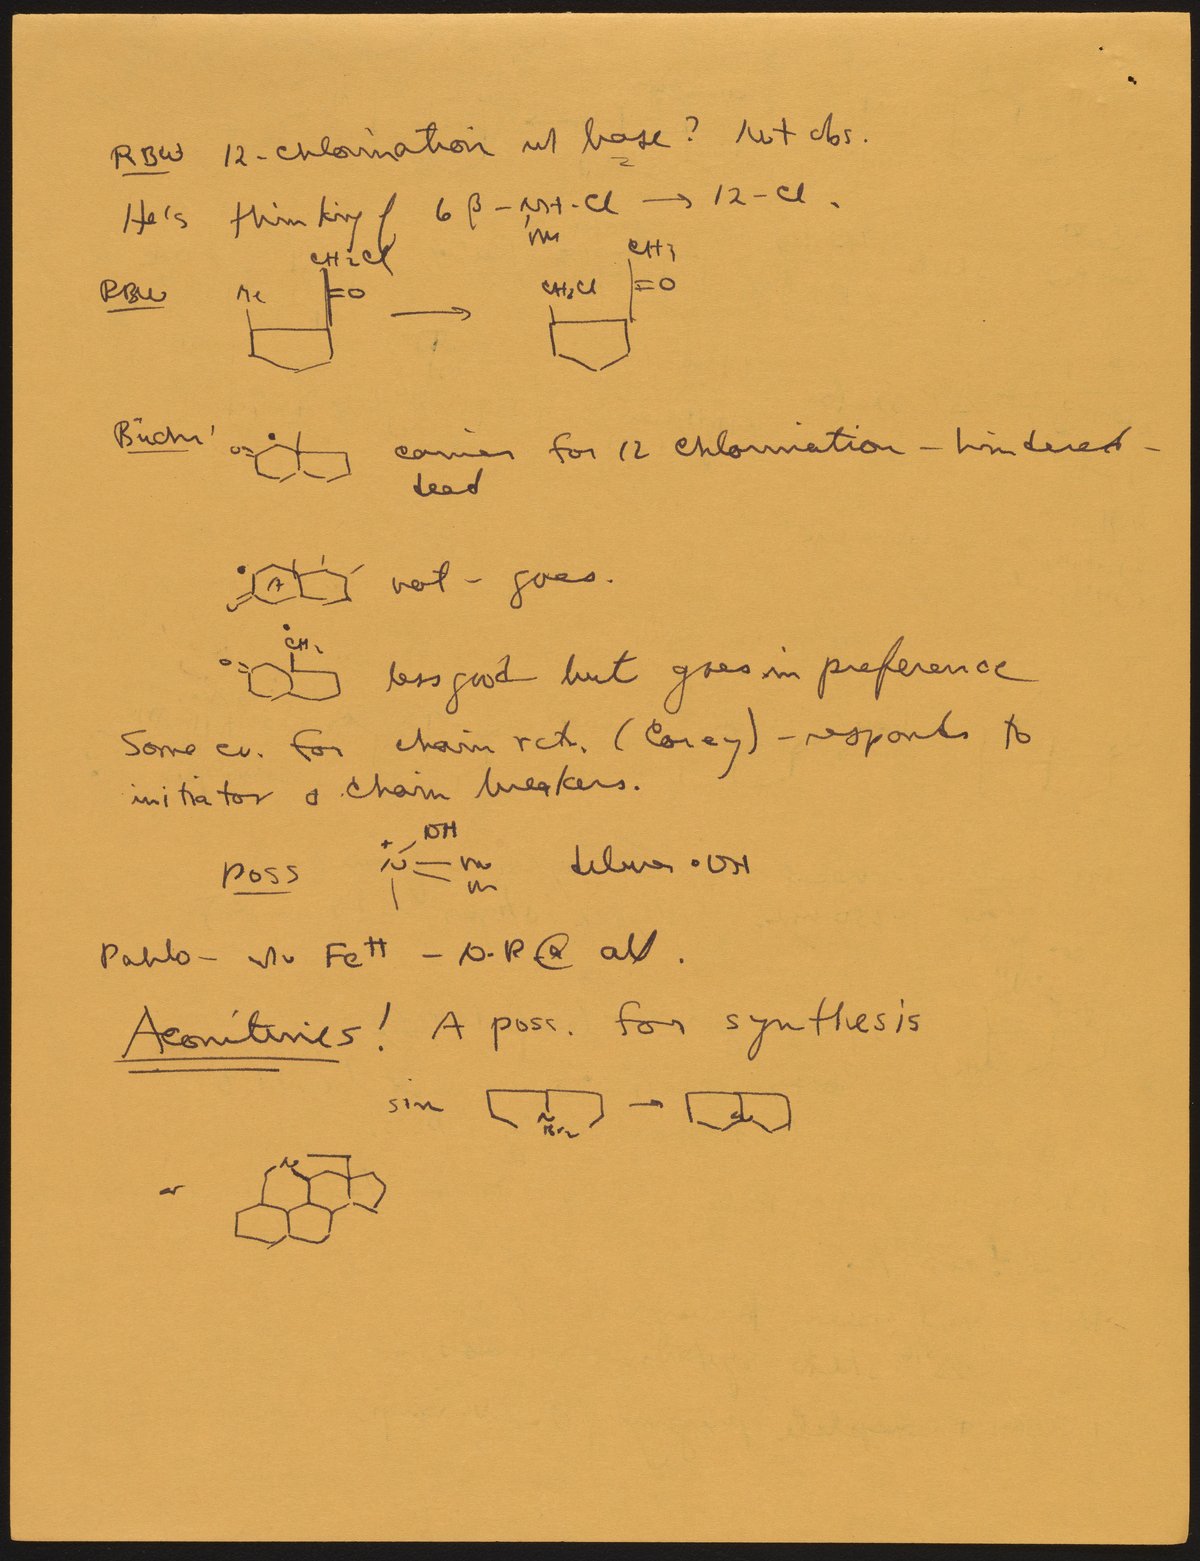 RBW 12-chlorination w/ base? Not obs.
He's thinking of 6β-NH-Cl → 12-Cl.
Me
CH2Cl CH3
RBW Me =O → CH2Cl =O
Büchi O= carrier for 12 chlorination - hindered -
dead
A not - goes.
CH2
O= less good but goes in preference
Some ev. for chain rctn. (Corey) - responds to
initiator & chain breakers.
OH
poss +N = Me ·OH
Me
Pablo - Fe++ - N-R alk.
Aconitines! A poss. for synthesis
sim N →  N
Br2
or N